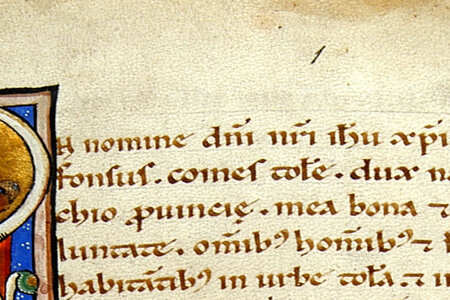 1
N nomine dñi nr̃i ih̃u xp̃i
fonsus. comes tole. dux na
chio ꝓuincię. mea bona et
luntate. omĩbꝰ homĩbꝰ et
habitãtibꝰ in urbe tola. et in